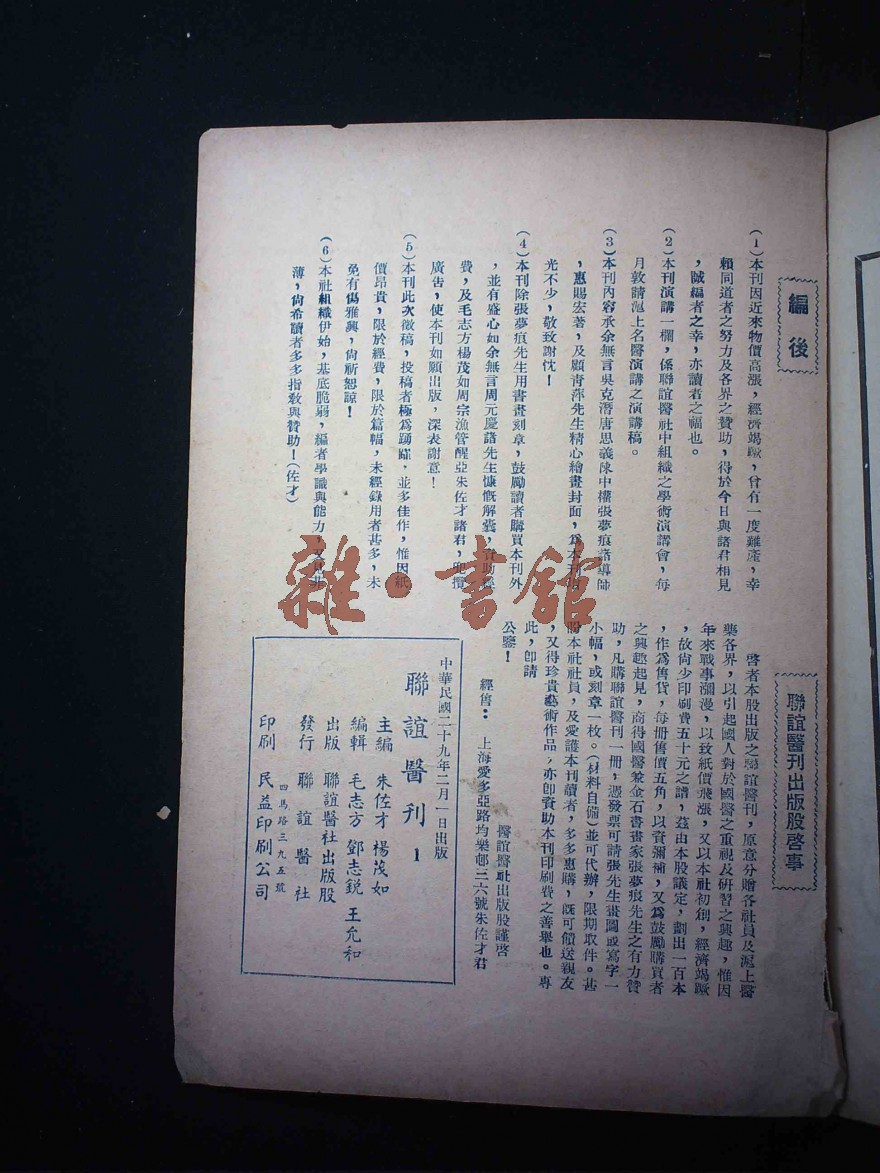 編後
(1)本刊因近來物價高漲，經濟竭蹶，曾有一度難產，幸
賴同道者之努力及各界之贊助，得於今日與諸君相見
，誠編者之幸，亦讀者之福也。
(2)本刊演講一欄，係聯誼醫社中組織之學術演講會，每
月敦請滬上名醫演講之演講稿。
(3)本刊內容承余無言吳克潛唐思義陳中權張夢痕諸導師
，惠賜宏著，及顧青萍先生精心繪畫封面，爲本刊增
光不少，敬致謝忱！
(4)本刊除張夢痕先生用書畫刻章，鼓勵讀者購買本刊外
，並有盛心如余無言周元慶諸先生慷慨解囊，資助
費，及毛志方楊茂如周宗漁管醒亞朱佐才諸君，
廣告，使本刊如願出版，深表謝意！
(5)本刊此次徵稿，投稿者極爲踴躍，並多佳作，惟因紙
價昂貴，限於經費，限於篇幅，未經錄用者甚多，未
免有傷雅興，尙祈恕諒！
(6)本社組織伊始，基底脆弱，編者學識與能力，
薄，尙希讀者多多指敎與贊助！(佐才)
聯誼醫刊出版股啓事
啓者本股出版之聯誼醫刊，原意分贈各社員及滬上醫
藥各界，以引起國人對於國醫之重視及研習之興趣，惟因
年來戰事瀰漫，以致紙價飛漲，又以本社初創，經濟竭蹶
，故尙少印刷費五十元之譜，茲由本股議定，劃出一百本
，作爲售貨，每冊售價五角，以資彌補，又爲鼓勵購買者
之興趣起見，商得國醫兼金石書畫家張夢痕先生之有力贊
助，凡購聯誼醫刊一冊，憑發票可請張先生畫圖或寫字一
小幅，或刻章一枚。(材料自備)並可代辦，限期取件。甚
盼本社社員，及愛護本刊讀者，多多惠購，旣可餽送親友
，又得珍貴藝術作品，亦卽資助本刊印刷費之善舉也。專
此，卽請
公鑒！
醫誼醫社出版股謹啓
經售：　上海愛多亞路均樂邨三六號朱佐才君
中華民國二十九年二月一日出版
聯誼醫刊 1
主編 朱佐才 楊茂如
編輯 毛志方 鄧志銳 王允和
出版 聯誼醫社出版股
發行 聯誼醫社
四馬路三九五號
印刷 民益印刷公司
雜·書館